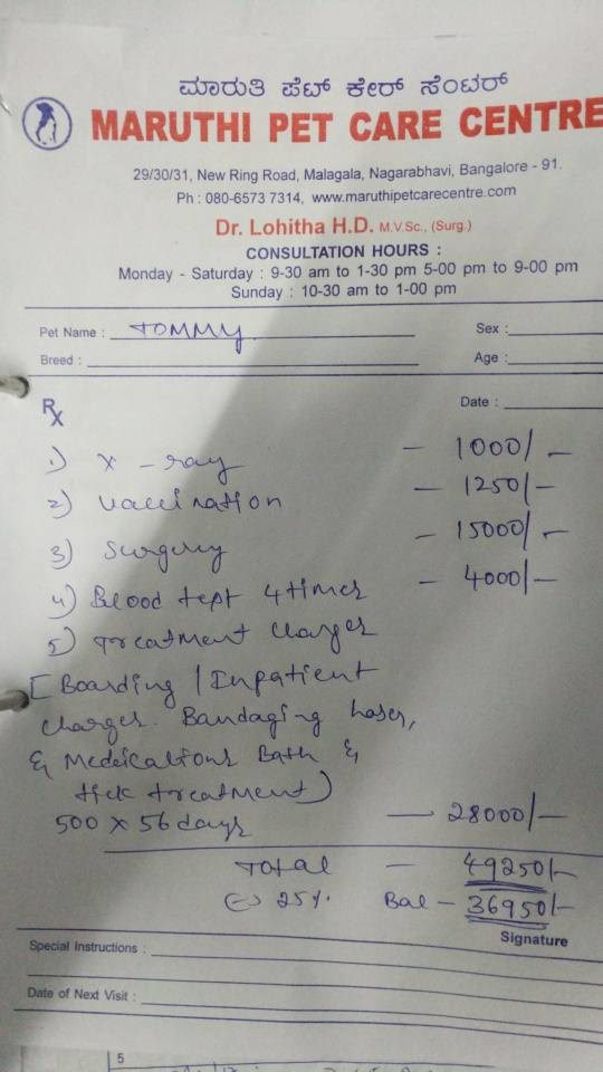 ಮಾರುತಿ ಪೆಟ್ ಕೇರ್ ಸೆಂಟರ್
MARUTHI PET CARE CENTRE
29/30/31, New Ring Road, Malagala, Nagarabhavi, Bangalore - 91.
Ph : 080-6573 7314, www.maruthipetcarecentre.com
Dr. Lohitha H.D. M.V.Sc., (Surg.)
CONSULTATION HOURS :
Monday - Saturday : 9-30 am to 1-30 pm 5-00 pm to 9-00 pm
Sunday : 10-30 am to 1-00 pm
Pet Name : TOMMY Sex :
Breed : Age :
Rx Date :
1) X-ray - 1000/-
2) Vaccination - 1250/-
3) Surgery - 15000/-
4) Blood test 4 times - 4000/-
5) Treatment charges
[Boarding / Inpatient
charges. Bandaging laser,
& Medications Bath &
tick treatment)
500 X 56 days - 28000/-
Total - 49250/-
(-) 25%. Bal - 36950/-
Signature
Special Instructions :
Date of Next Visit :
5